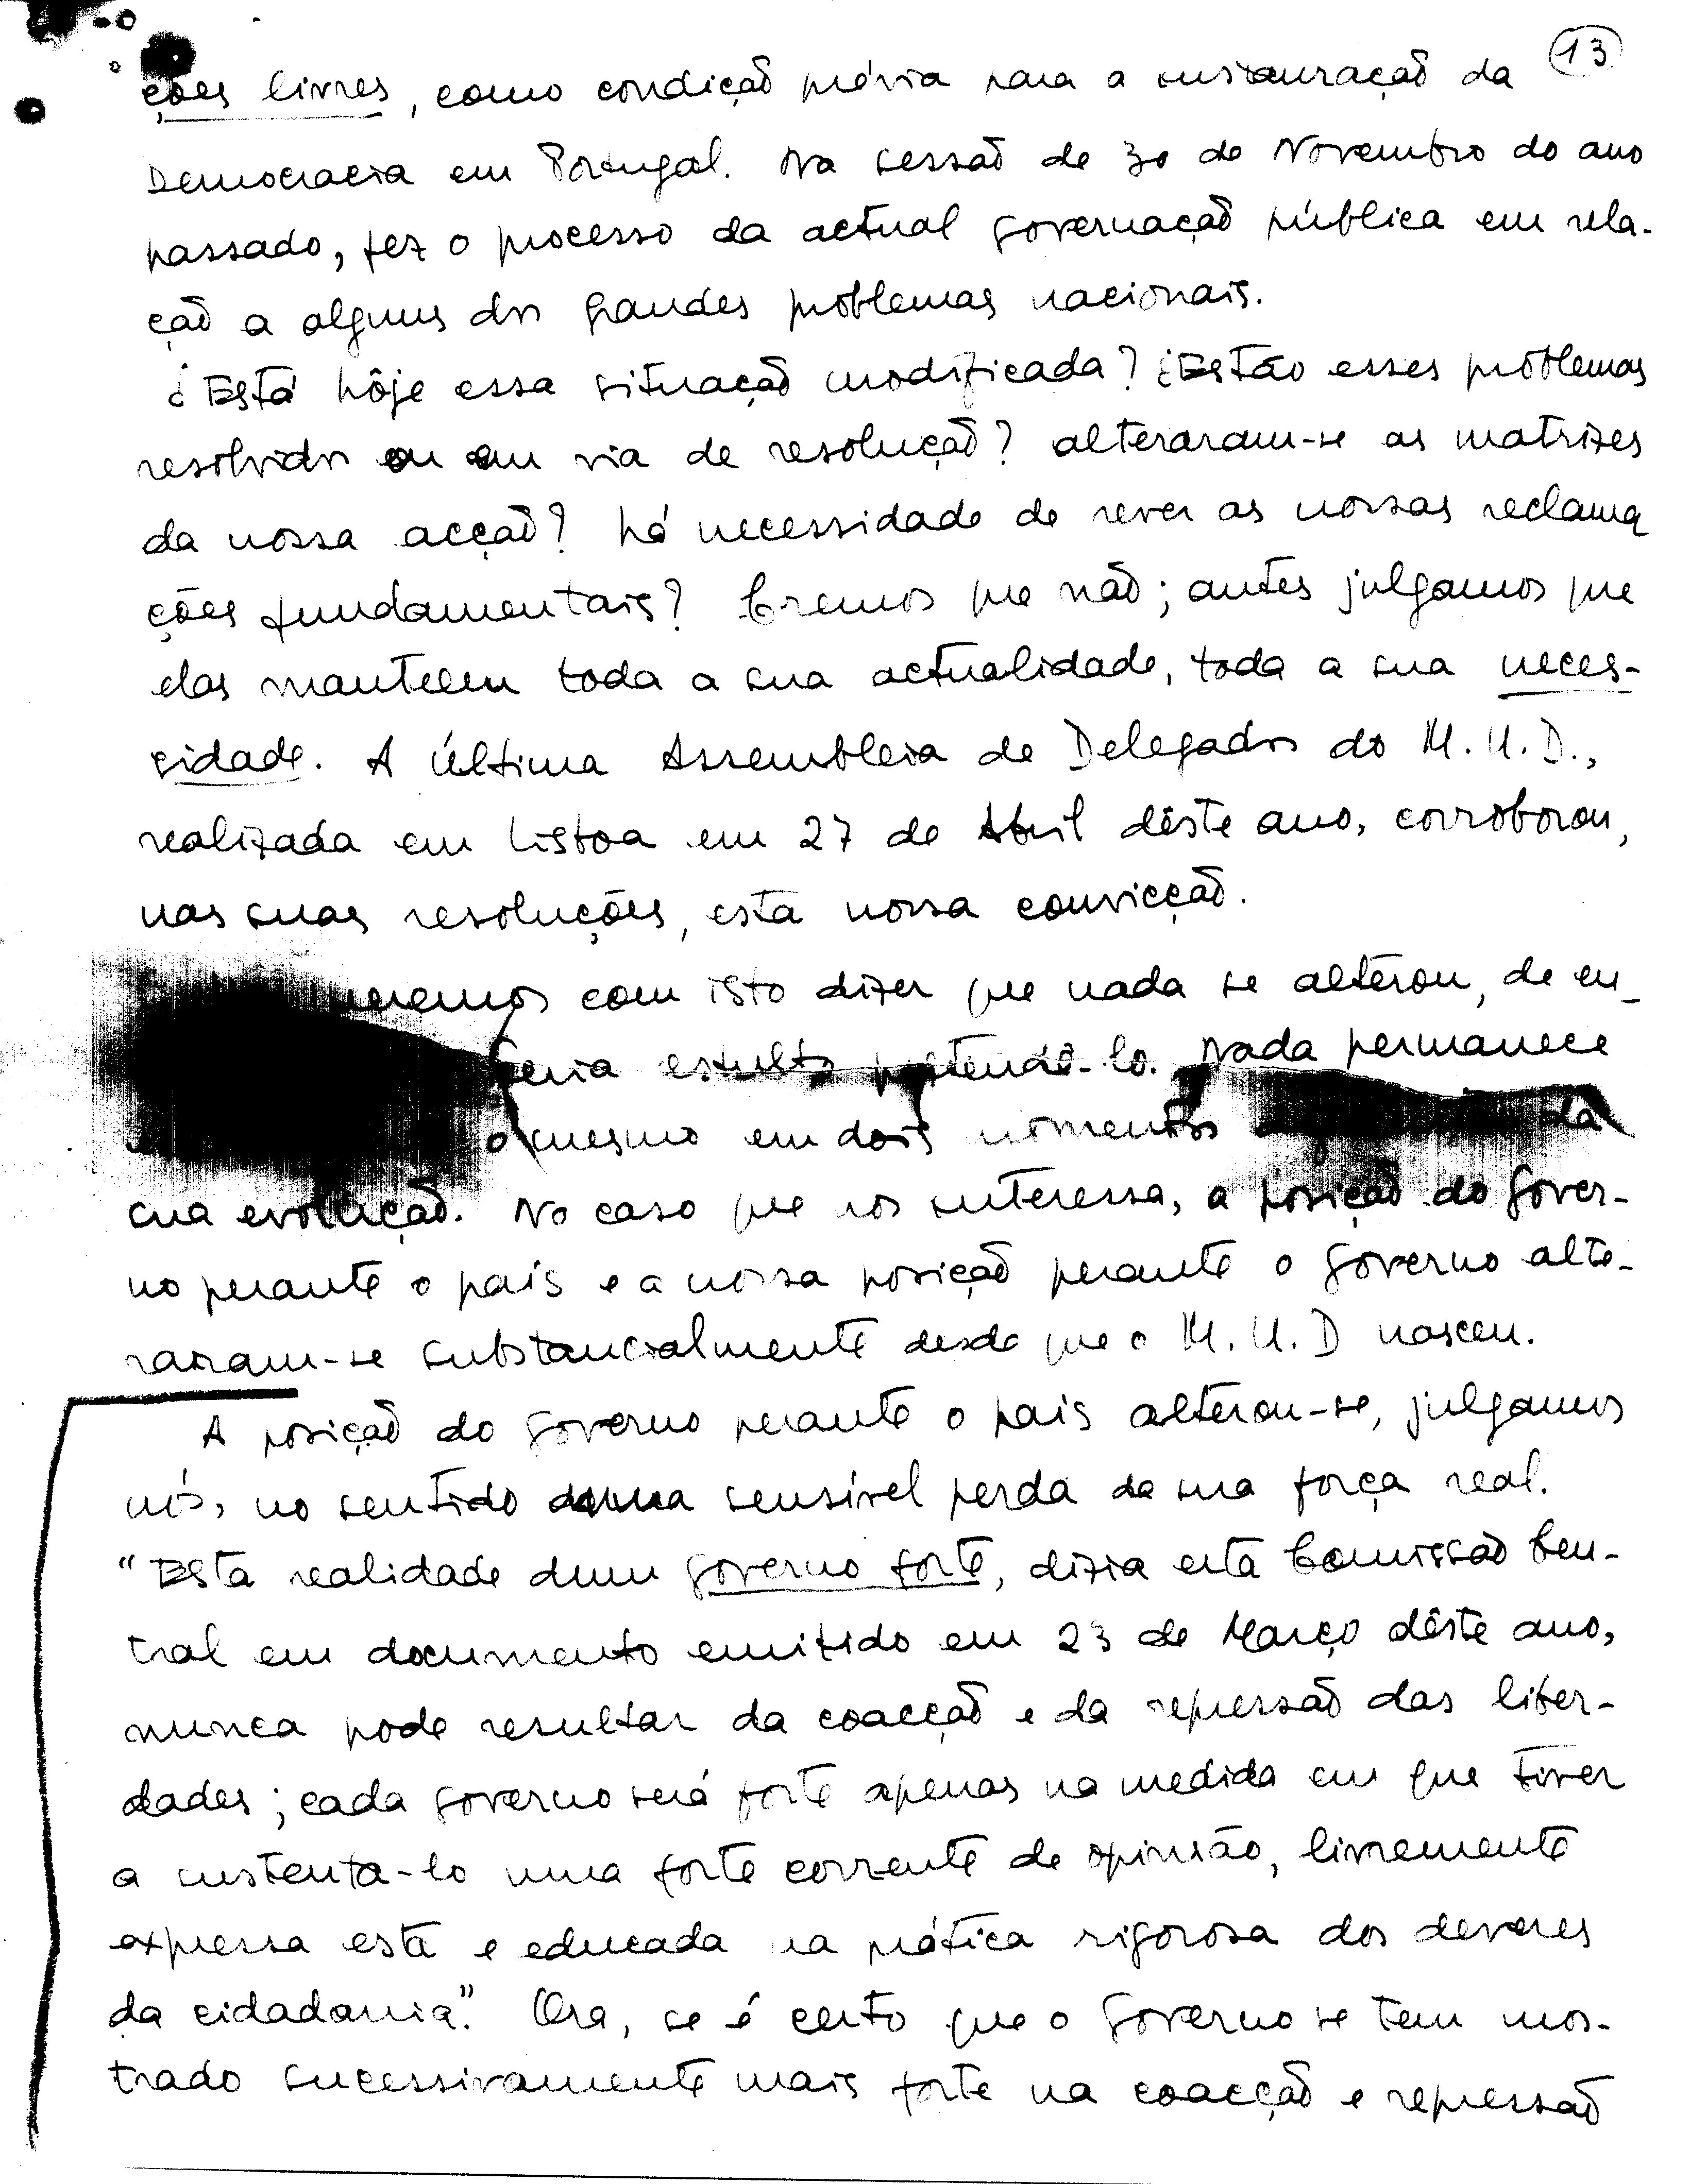 13
ções livres, como condição prévia para a instauração da
Democracia em Portugal. Na sessão de 30 de Novembro do ano
passado, fez o processo da actual governação pública em rela-
ção a alguns dos grandes problemas nacionais.
¿Está hôje essa situação modificada? ¿Estão esses problemas
resolvidos ou em via de resolução? alteraram-se as matrizes
da nossa acção? há necessidade de rever as nossas reclama
ções fundamentais? Cremos que não; antes julgamos que
elas manteem toda a sua actualidade, toda a sua neces-
sidade. A última Assembleia de Delegados do M.U.D.,
realizada em Lisboa em 27 de Abril dêste ano, corroborou,
nas suas resoluções, esta nossa convicção.
queremos com isto dizer que nada se alterou, de en-
Seria estulto pretendê-lo. Nada permanece
o mesmo em dois momentos da
sua evolução. No caso que nos interessa, a posição do Gover-
no perante o país e a nossa posição perante o Governo alte-
raram-se substancialmente desde que o M.U.D nasceu.
A posição do Governo perante o país alterou-se, julgamos
nós, no sentido duma sensível perda da sua força real.
"Esta realidade dum governo forte, dizia esta Comissão Cen-
tral em documento emitido em 23 de Março dêste ano,
nunca pode resultar da coacção e da repressão das liber-
dades; cada governo será forte apenas na medida em que tiver
a sustenta-lo uma forte corrente de opinião, livremente
expressa esta e educada na prática rigorosa dos deveres
da cidadania." Ora, se é certo que o Governo se tem mos-
trado sucessivamente mais forte na coacção e repressão